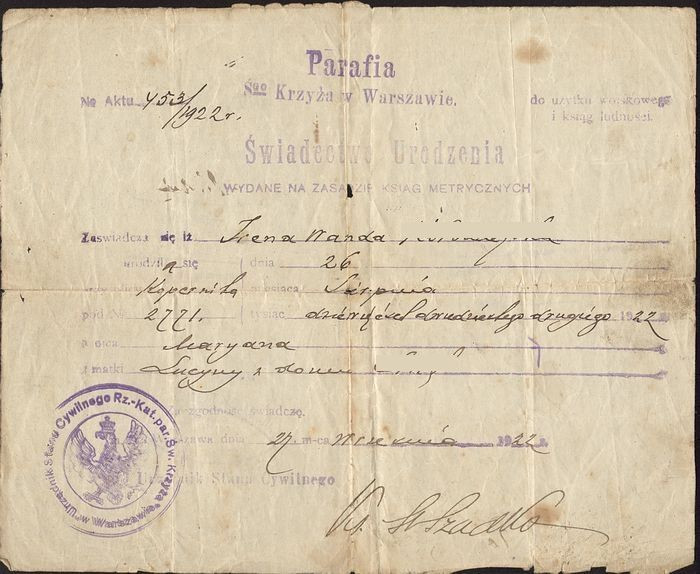 Parafia
Sgo Krzyża w Warszawie.
No Aktu 453/1922 r.
do użytku wojskowego
i ksiąg ludności.
Świadectwo Urodzenia
WYDANE NA ZASADZIE KSIĄG METRYCZNYCH
Zaświadcza się iż Irena Wanda
urodziła się dnia 26
Kopernika miesiąca Sierpnia
pod No 2771. tysiąc dziewięćset dwudziestego drugiego 1922
z ojca Maryana
z matki Lucyny z domu
Za zgodność świadczę.
Warszawa dnia 27 m-ca Września 1922 r.
Urzędnik Stanu Cywilnego
Ks. Szadko
Urzędnik Stanu Cywilnego Rz.-Kat. par. Św. Krzyża w Warszawie